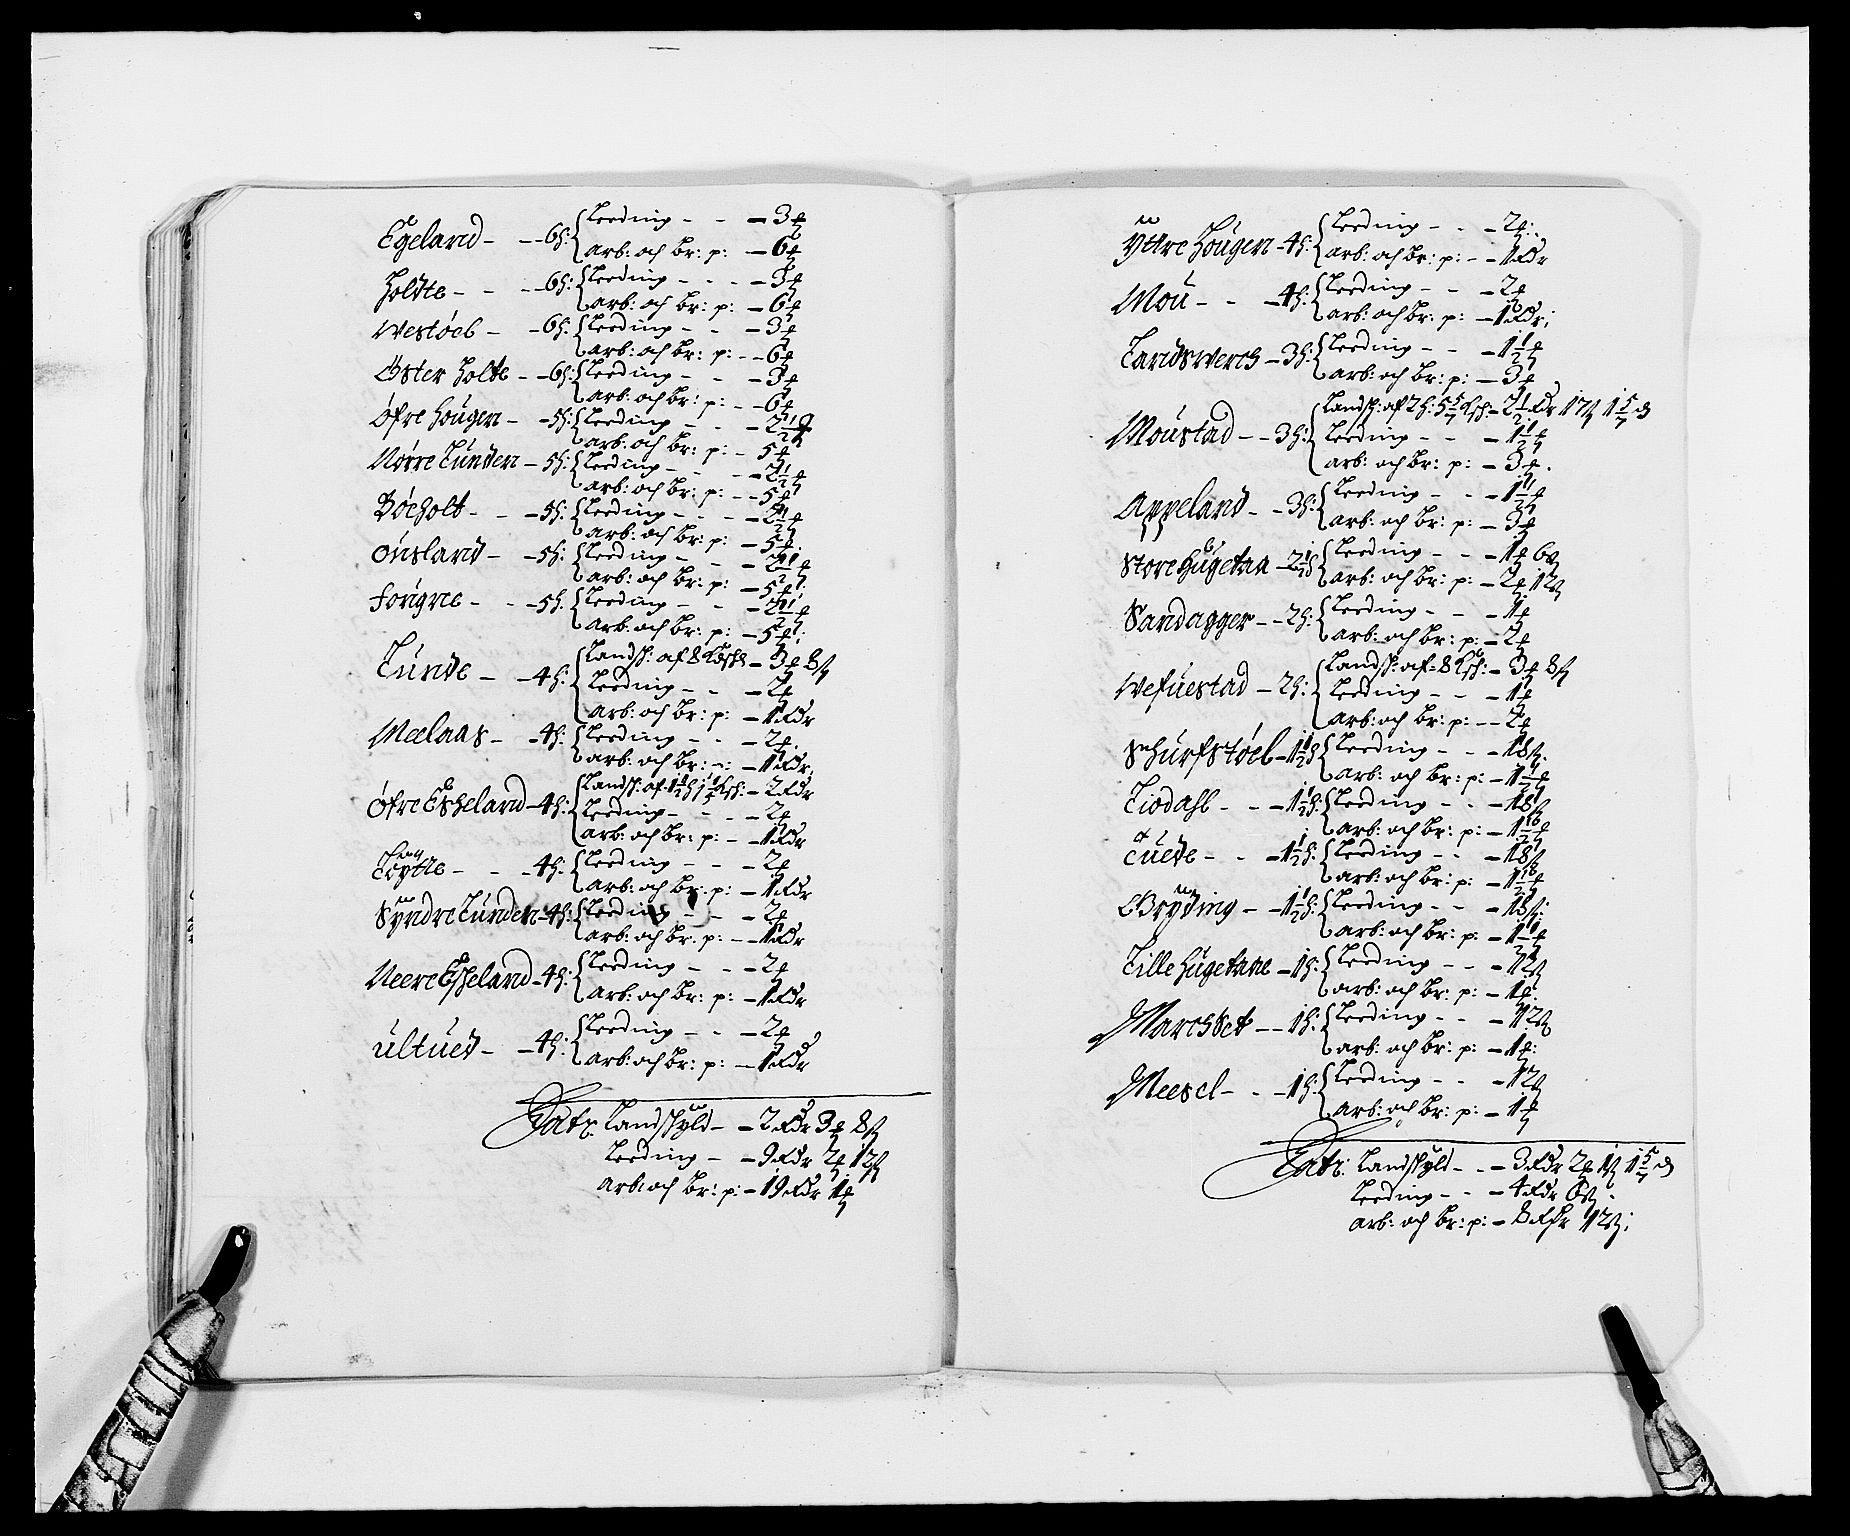 Egeland - - - 6 h: { Leeding - - - 3 ℔
arb: och br: p: - 6 ℔
Holdte - - - 6 h: { Leeding - - - 3 ℔
arb: och br: p: - 6 ℔
Westøel - - 6 h: { Leeding - - - 3 ℔
arb: och br: p: - - 6 ℔
Öster Holte - - 6 h: { Leeding - - - 3 ℔
arb: och br: p: - - 6 ℔
Öfre Hougen - - 5 h: { Leeding - - - 2½ ℔
arb: och br: p: - 5 ℔
Nørre Lunden - 5 h: { Leeding - - - 2½ ℔
arb: och br: p: - - 5 ℔
Bøeholt - - - 5 h: { Leeding - - - 2½ ℔
arb: och br: p: - 5 ℔
Ousland - - 5 h: { Leeding - - 2½ ℔
arb: och br: p: - 5 ℔
Fougne - - - 5 h: { Leeding - - - 2½ ℔
arb: och br: p: - 5 ℔:
Lunde - - 4 h: { Landsk: af 8 - 3 ℔ 8 ß
Leeding - - - 2 ℔
arb: och br: p: - 1 Rdr
Meelaas - - 4 h: { Leeding - - - 2 ℔.
arb: och br: - 1 Rdr:
Öfre Eskeland - 4 h: { Landsk: af 1½ h - 2 Rdr
Leeding - - - 2 ℔
arb: och br: p: - 1 Rdr
Løytte - - - 4 h: { Leeding - - - 2 ℔
arb: och br: p: - 1 Rdr
Syndre Lunden - 4 h: { Leeding - - - 2 ℔
arb: och br: p: - - 1 Rdr
Neere Eskeland - 4 h: { Leeding - - - 2 ℔
arb: och br: p: - 1 Rdr
Ultued - - 4 h: { Leeding - - - 2 ℔
arb: och br: p: - - 1 Rdr
Latr. Landskyld - - 2 Rdr 3 ℔ 8 ß
Leeding - - 9 Rdr 2 ℔ 12 ß
arb: och br: p: - 19 Rdr 1 ℔
Yttre Hougen - 4 h: { Leeding - - - 2 ℔:.
arb: och br: p: - - 1 Rdr
Mou - - - 4 h: { Leeding - - - 2 ℔
arb: och br: p: - 1 Rdr;
Landswerch - 3 h: { Leeding - - - 1½ ℔
arb: och br: p: - 3 ℔
Moustad - - 3 h: { Landsk: af 2 h: 5 5/7 - 2½ Rdr 17 ß 1 5/7
Leeding - - - 1½ ℔
arb: och br: p: - 3 ℔.
Appeland - - 3 h: { Leeding - - - 1½ ℔
arb: och br: p: - 3 ℔
Store Hugetaa - 2½ h { Leeding - - - 1 ℔ 6 ß
arb: och br: p: - 2 ℔ 12 ß
Sandagger - - 2 h: { Leeding - - - 1 ℔
arb: och br: p: - 2 ℔
Wefuestad - 2 h: { Landsk: af 8 - 3 ℔ 8 ß
Leeding - - - 1 ℔
arb: och br: p: - - 2 ℔
Schurfstøel - 1½ h { Leeding - - - 18 ß.
arb: och br: p: - 1½ ℔
Liodahl - - - 1½ h: { Leeding - - - 18 ß
arb: och br: p: - 1½ ℔
Tuede - - - 1½ h: { Leeding - - - 18 ß
arb: och br: p: - 1½ ℔
Gryding - - 1½ h: { Leeding - - - 18 ß:
arb: och br: p: - 1½ ℔
Lille Hugetane - 1 h: { Leeding - - - 12 ß
arb: och br: p: - 1 ℔:
Marchset - - 1 h: { Leeding - - - 12 ß
arb: och br: p: - 1 ℔:
Meesel - - - 1 h: { Leeding - - - 12 ß
arb: och br: p: - 1 ℔
Latr: Landskyld - - - 3 Rdr 2 ℔ 1 ß 1 5/7
Leeding - - - 4 Rdr 6 ß.
arb: och br: p: - 8 Rdr 12 ß: